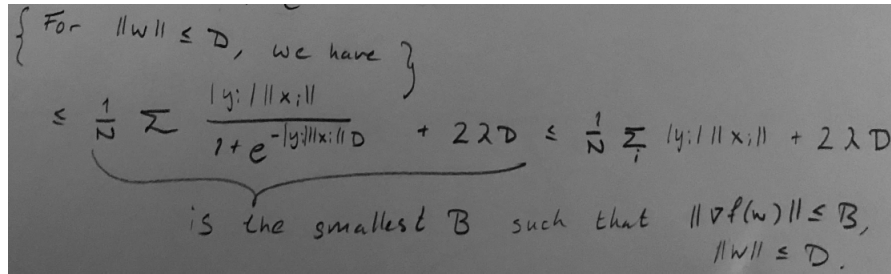 { For ||w|| ≤ D, we have }
≤ 1/N Σ |yi| ||xi|| / (1 + e^{-|yi| ||xi|| D}) + 2λD ≤ 1/N Σ_i |yi| ||xi|| + 2λD
is the smallest B such that ||∇f(w)|| ≤ B,
||w|| ≤ D.